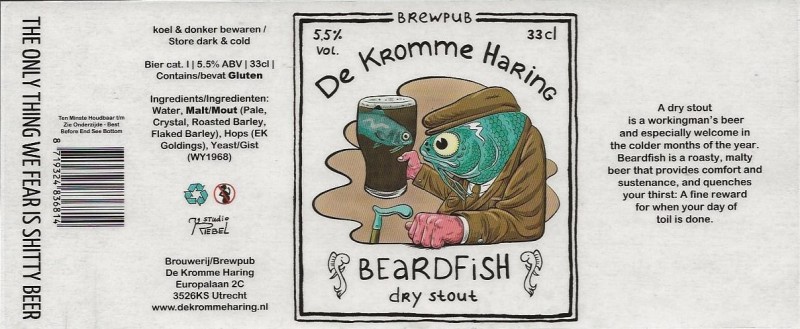 THE ONLY THING WE FEAR IS SHITTY BEER
Ten Minste Houdbaar t/m
Zie Onderzijde - Best
Before End See Bottom
8 719324 836814
koel & donker bewaren /
Store dark & cold
Bier cat. I | 5.5% ABV | 33cl |
Contains/bevat Gluten
Ingredients/Ingredienten:
Water, Malt/Mout (Pale,
Crystal, Roasted Barley,
Flaked Barley), Hops (EK
Goldings), Yeast/Gist
(WY1968)
studio
Brouwerij/Brewpub
De Kromme Haring
Europalaan 2C
3526KS Utrecht
www.dekrommeharing.nl
BREWPUB
5,5%
VOL.
33cl
De Kromme Haring
BEARDFISH
dry stout
A dry stout
is a workingman's beer
and especially welcome in
the colder months of the year.
Beardfish is a roasty, malty
beer that provides comfort and
sustenance, and quenches
your thirst: A fine reward
for when your day of
toil is done.